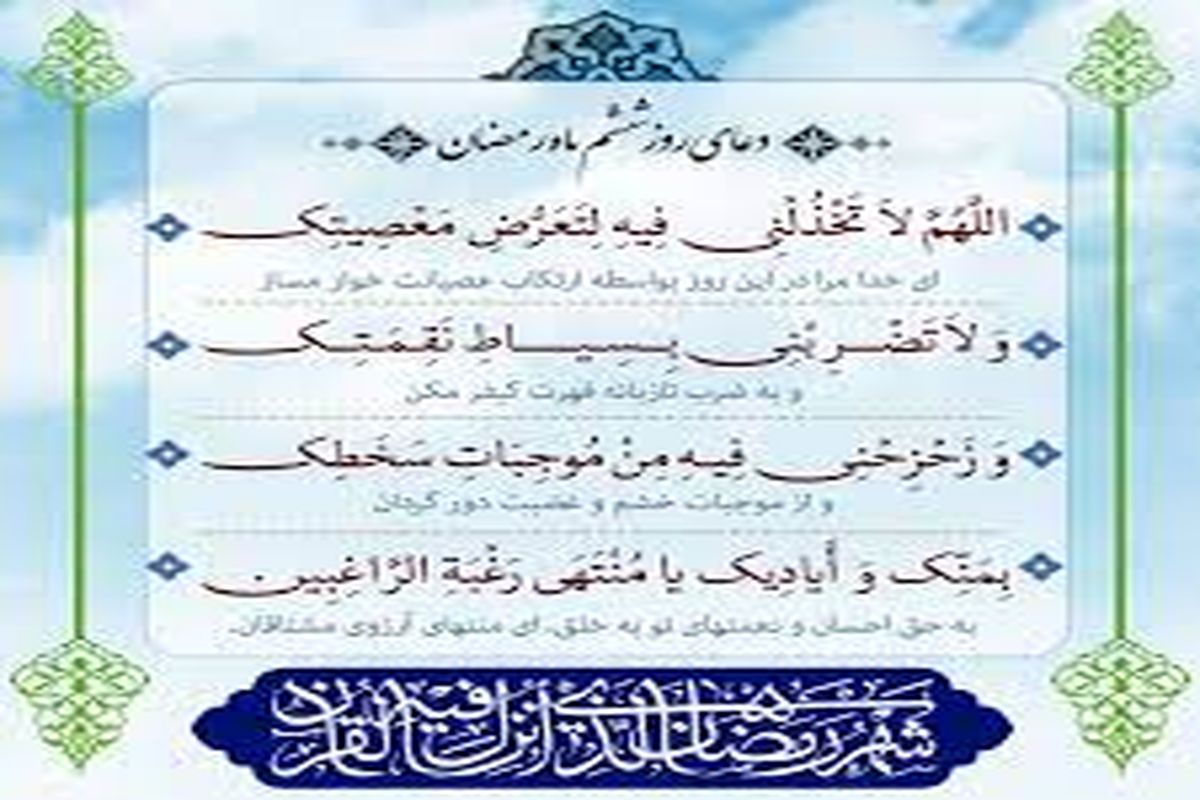 دعای روز ششم ماه رمضان
اللَّهُمَّ لاَ تَخْذُلْنِی فِیهِ لِتَعَرُّضِ مَعْصِیَتِک
ای خدا مرا در این روز بواسطه ارتکاب عصیانت خوار مساز
وَ لاَ تَضْرِبْنِی بِسِیَاطِ نَقِمَتِک
و به ضرب تازیانه قهرت کیفر مکن
وَ زَحْزِحْنِی فِیهِ مِنْ مُوجِبَاتِ سَخَطِک
و از موجبات خشم و غضبت دور گردان
بِمَنِّک وَ أَیَادِیک یا مُنْتَهَی رَغْبَةِ الرَّاغِبِین
به حق احسان و نعمتهای تو به خلق، ای منتهای آرزوی مشتاقان.
شهر رمضان الذی انزل فیه القرآن